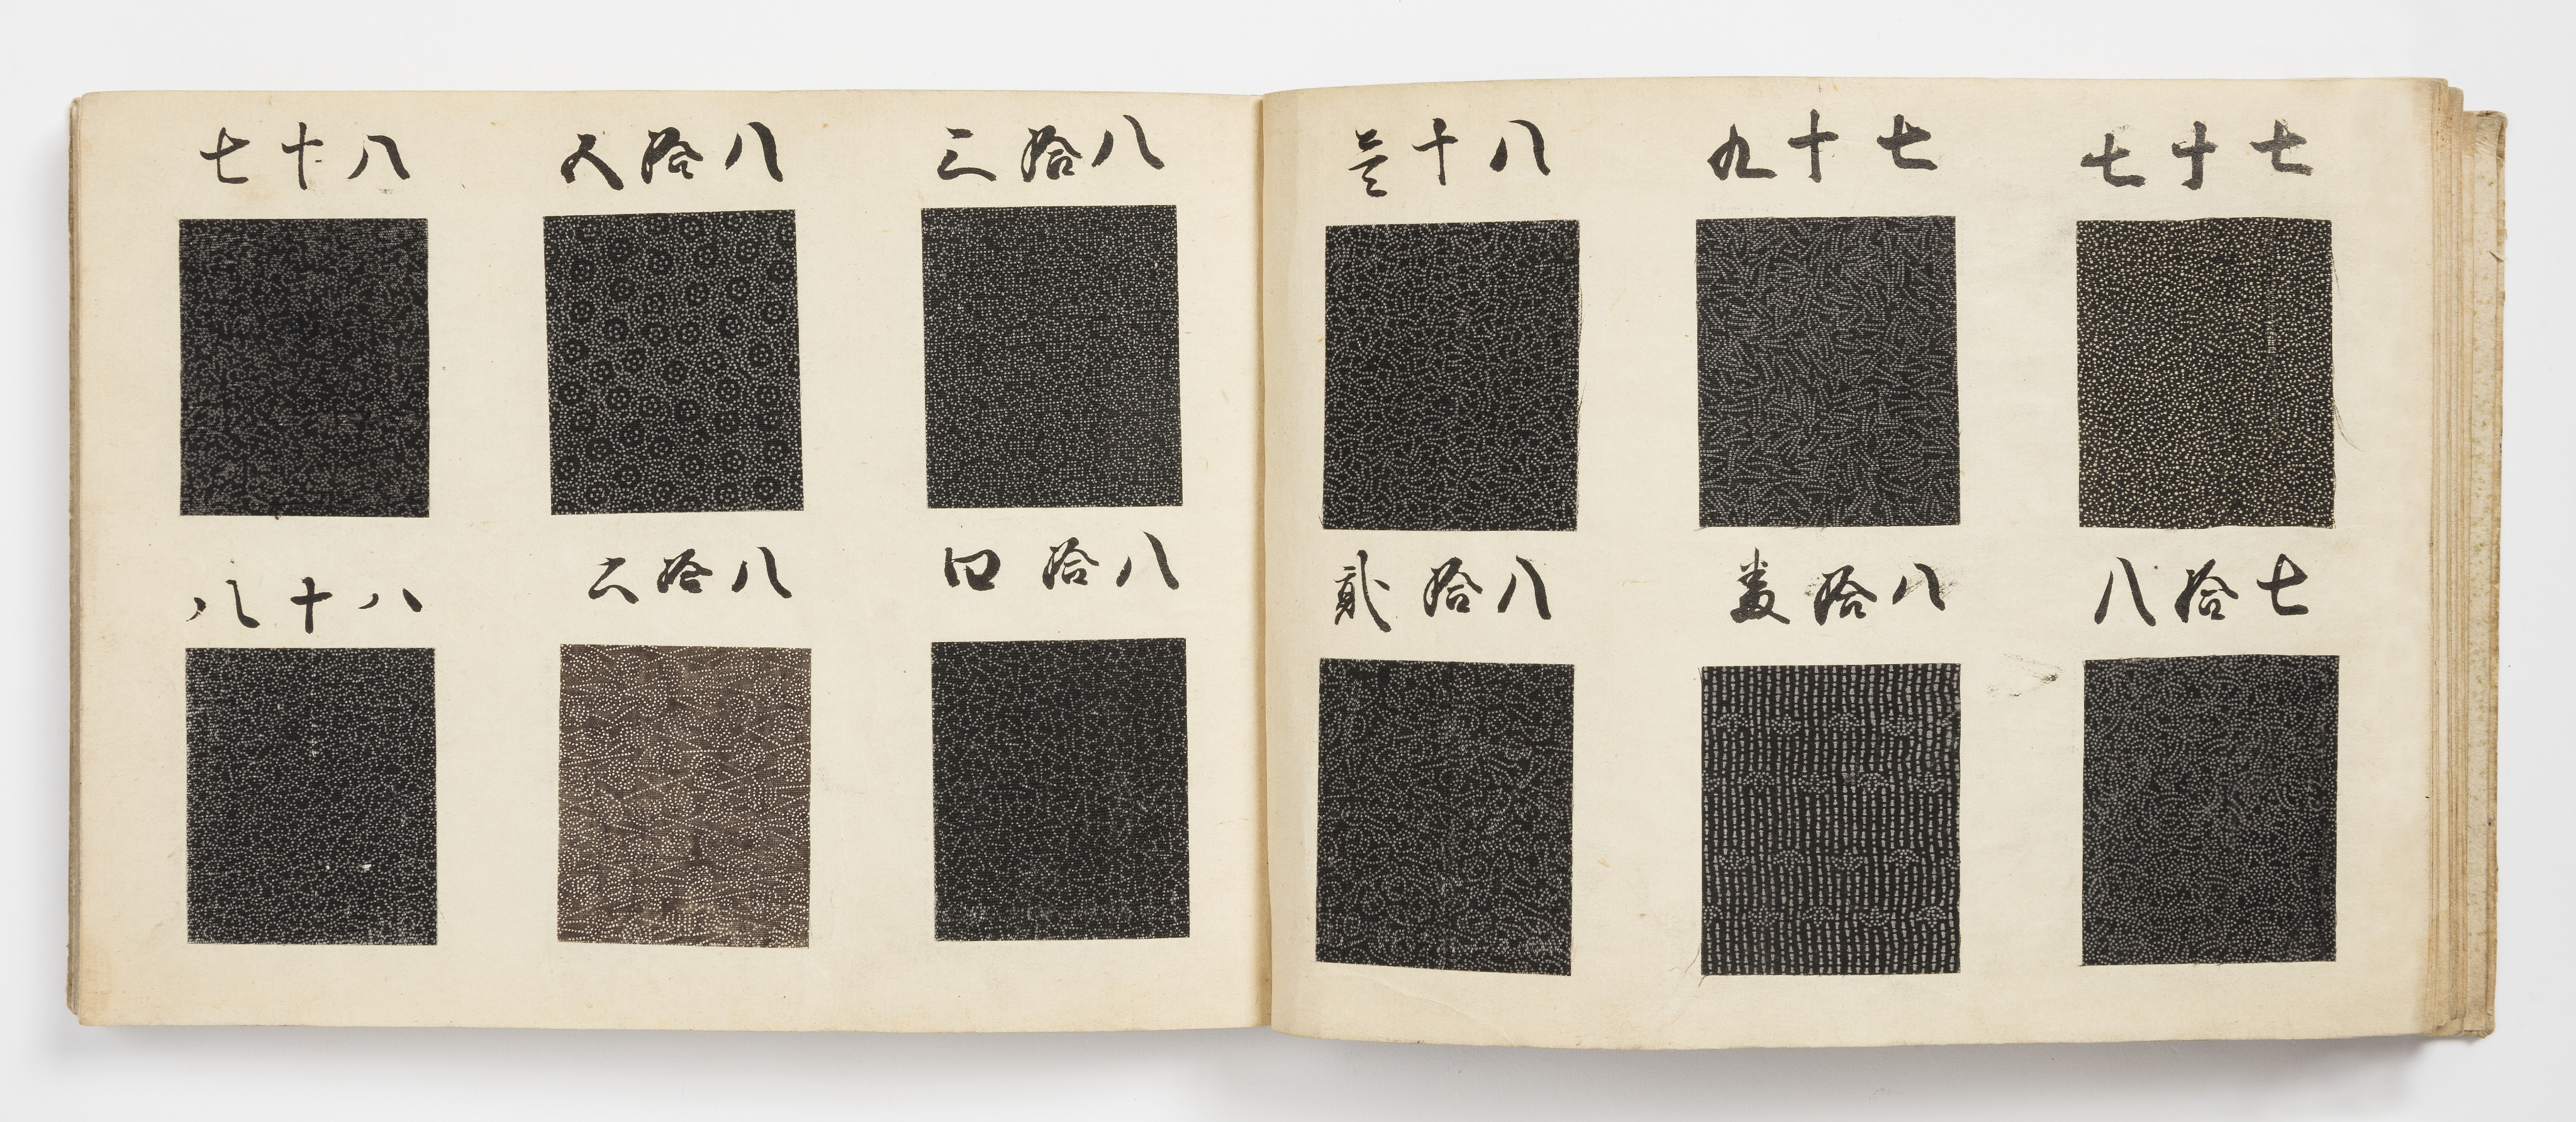 七十七
七拾八
七十九
八拾
八十壱
八拾貳
八拾三
八拾四
八拾五
八拾六
八十七
八十八